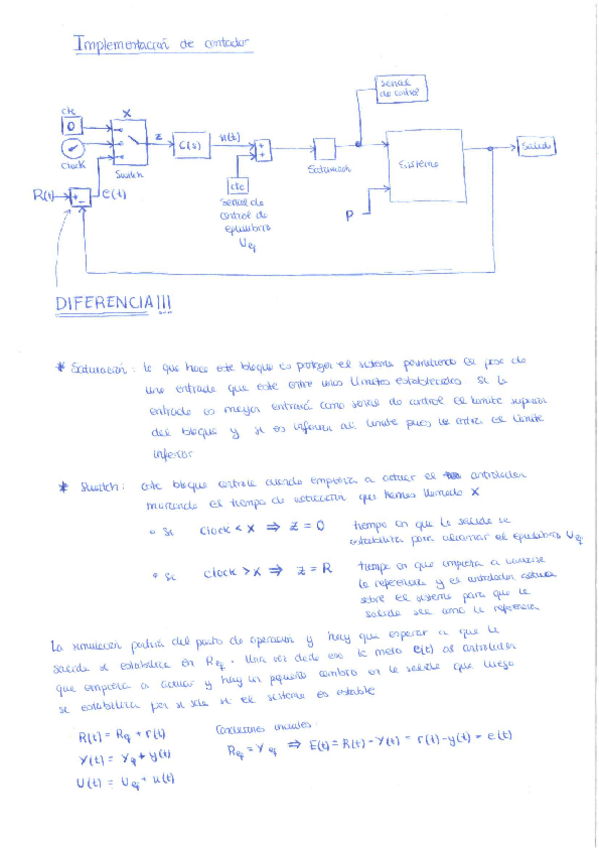 Implementación de controlador
señal
de control
cte
0
X
Clock
Switch
z
C(s)
u(t)
+
+
Saturación
Sistema
Salida
R(t)
+
-
e(t)
cte
señal de
control de
equilibrio
Ueq
P
DIFERENCIA!!!
* Saturación: lo que hace este bloque es proteger el sistema permitiendo el paso de
una entrada que este entre unos límites establecidos si la
entrada es mayor entrará como señal de control el límite superior
del bloque y si es inferior al límite pues le entra el límite
inferior
* Switch: este bloque controla cuando empieza a actuar el controlador
marcando el tiempo de actuación que hemos llamado X
• Si clock < X ⇒ z = 0 tiempo en que la salida se
estabiliza para alcanzar el equilibrio Ueq
• Si clock > X ⇒ z = R tiempo en que empieza a
la referencia y el controlador actua
sobre el sistema para que la
salida sea como la referencia
La simulación partirá del punto de operación y hay que esperar a que la
salida se estabilice en Req. Una vez dado eso le meto e(t) al controlador
que empieza a actuar y hay un pequeño cambio en la salida que luego
se estabiliza por si sola si el sistema es estable
R(t) = Req + r(t) Condiciones iniciales:
Y(t) = Yeq + y(t) Req = Yeq ⇒ E(t) = R(t) - Y(t) = r(t) - y(t) = e(t)
U(t) = Ueq + u(t)